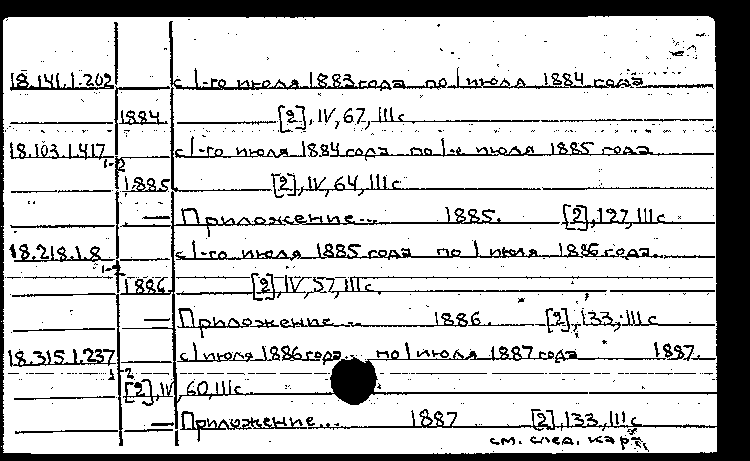 18.141.1.202 с 1-го июля 1883 года по 1 июля 1884 года
1884. [2], IV, 67, III с.
18.103.1.417 с 1-го июля 1884 года по 1-е июля 1885 года
1-2
1885. [2], IV, 64, III с.
— Приложение... 1885. [2], 127, III с.
18.218.1.8 с 1-го июля 1885 года по 1 июля 1886 года.
1-2
1886. [2], IV, 57, III с.
— Приложение... 1886. [2], 133, III с
18.315.1.237 с 1 июля 1886 года... по 1 июля 1887 года 1887.
1-2
[2], IV, 60, III с
— Приложение... 1887 [2], 133, III с
см. след. карт.